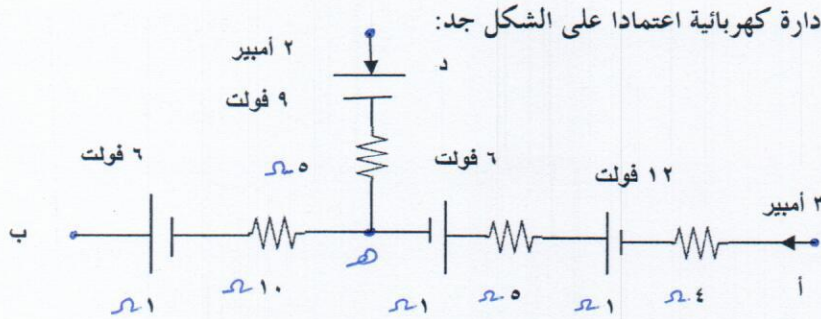 دارة كهربائية اعتمادا على الشكل جد:
٢ أمبير
د
٩ فولت
٦ فولت
٥ Ω
٦ فولت
١٢ فولت
أمبير
ب
هـ
أ
١ Ω
١٠ Ω
١ Ω
٥ Ω
١ Ω
٤ Ω